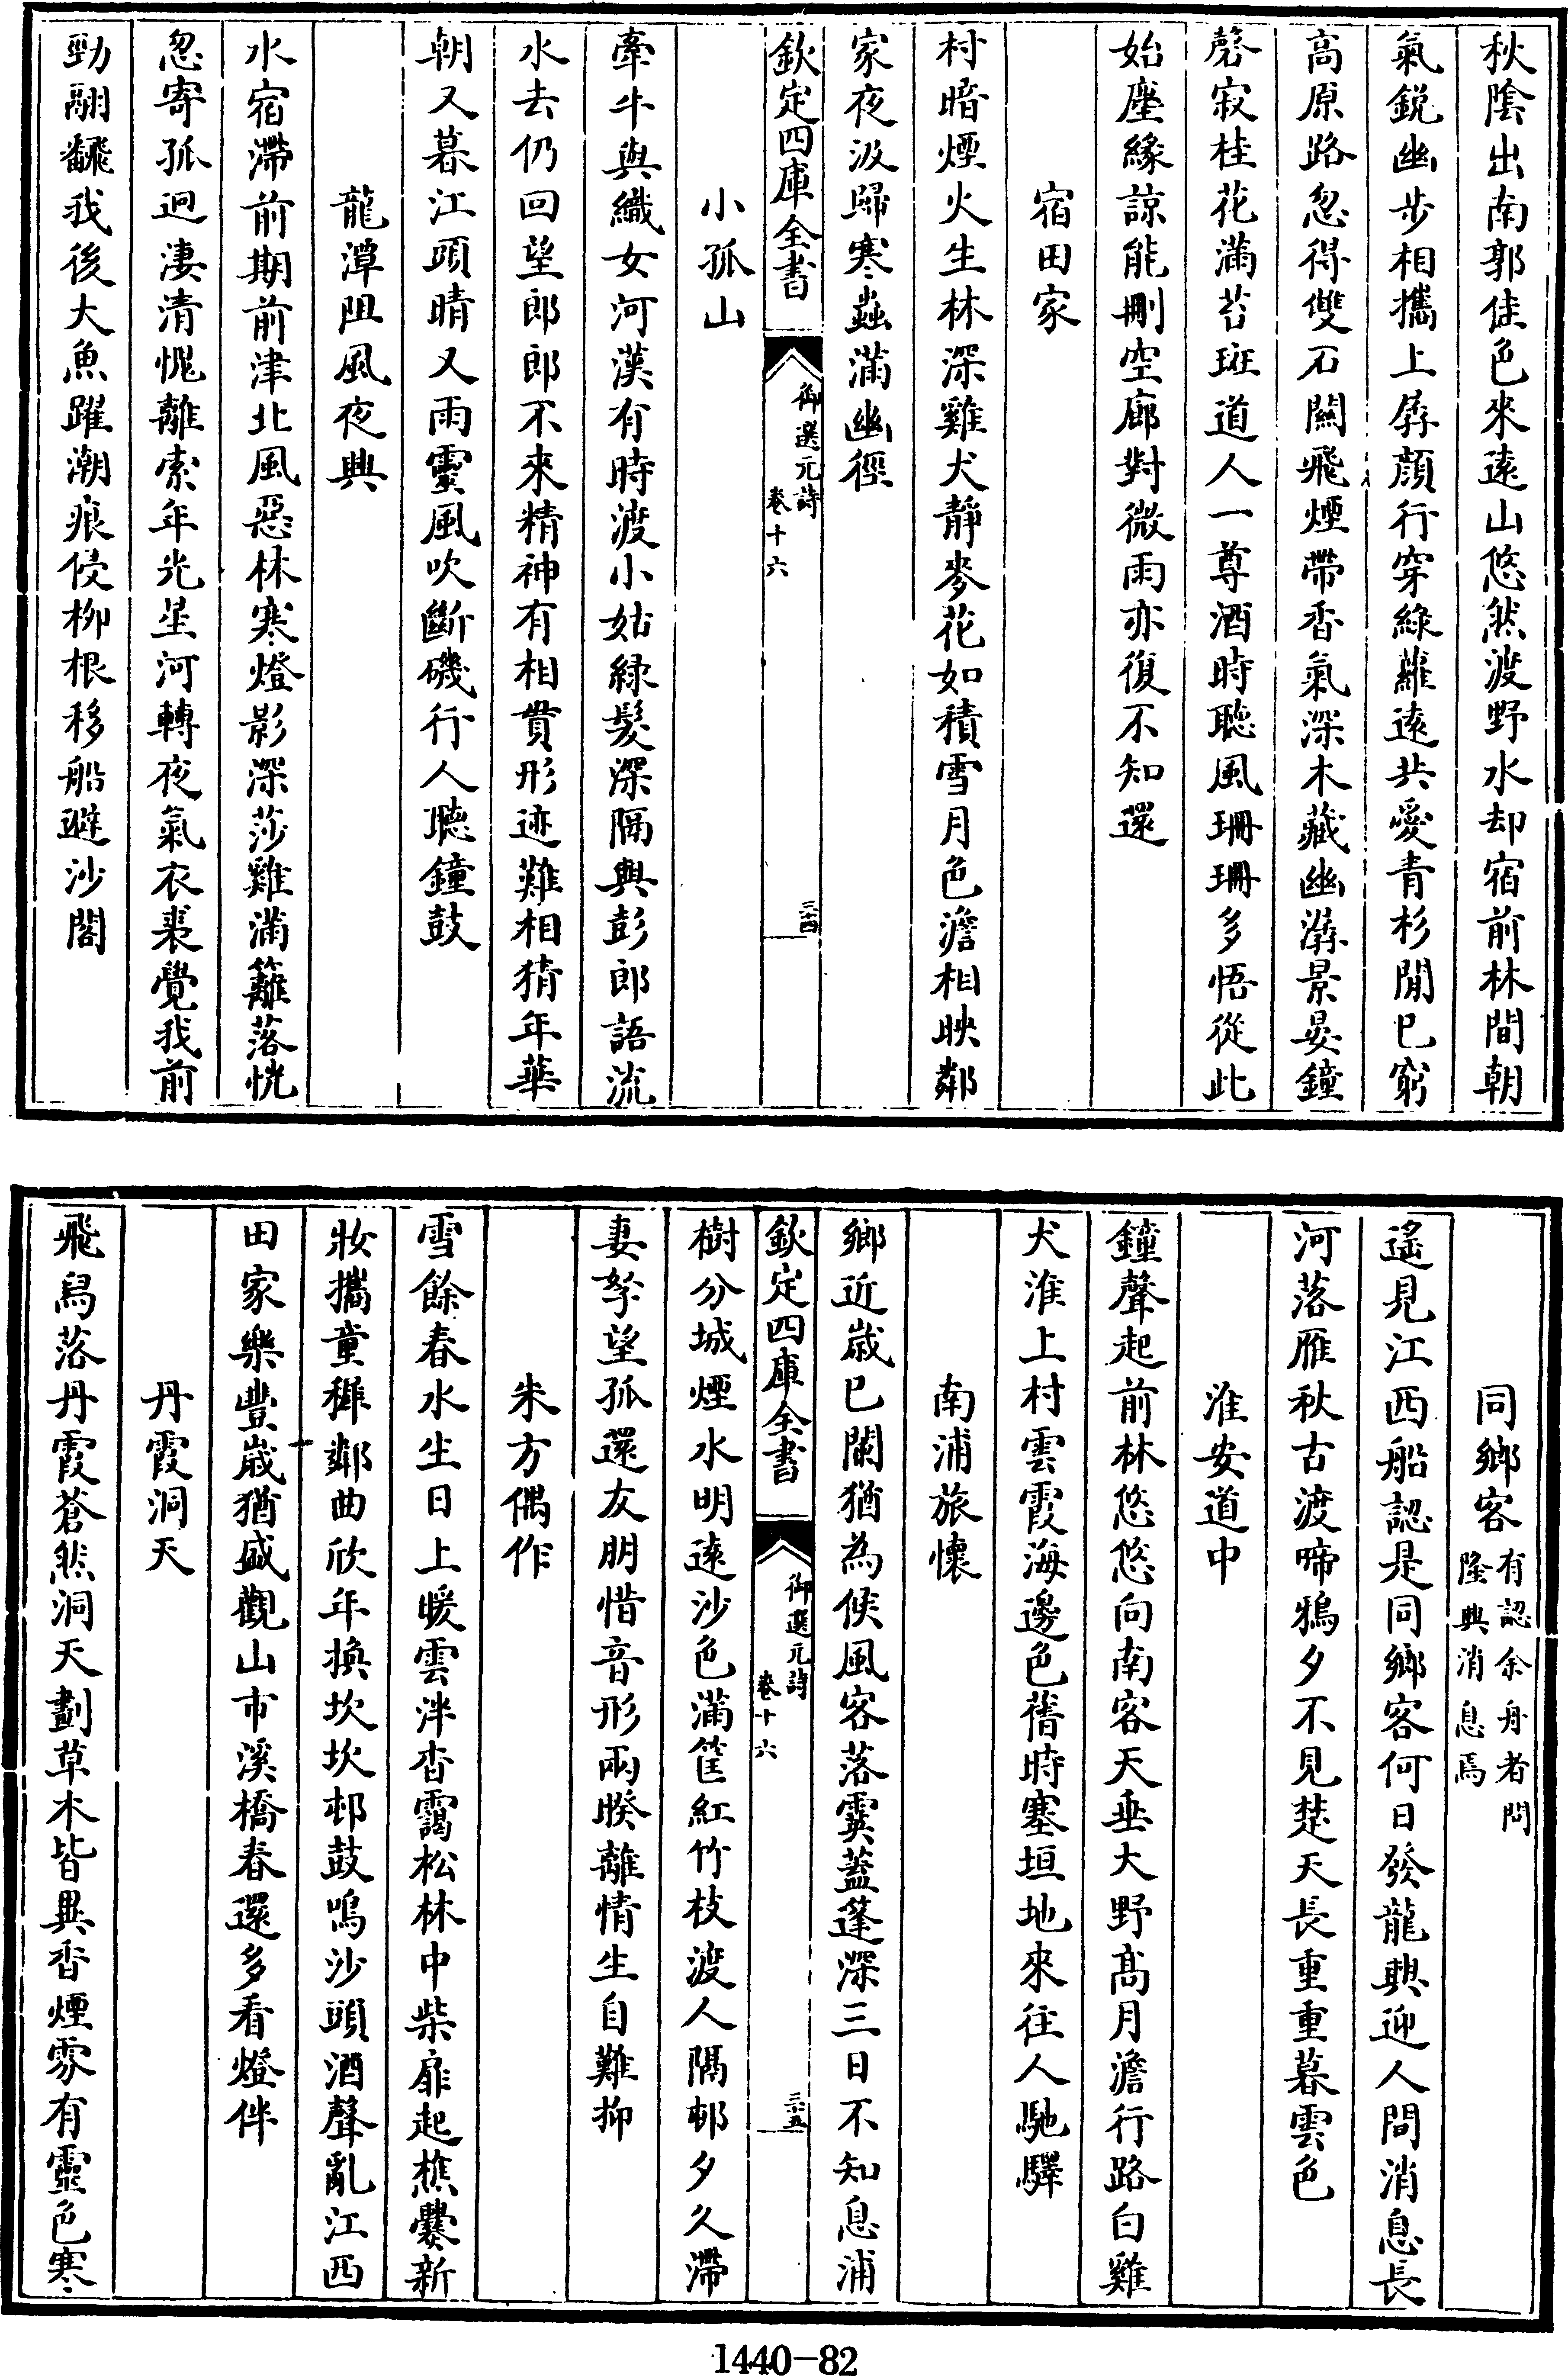 秋陰出南郭佳色來遠山悠然渡野水却宿前林間朝
氣鋭幽步相攜上孱顔行穿綠蘿遠共愛青杉閒已窮
高原路忽得雙石關飛煙帶香氣深木藏幽潺景晏鐘
磬寂桂花滿苔斑道人一尊酒時聽風珊珊多悟從此
始塵緣諒能刪空廊對微雨亦復不知還
宿田家
村暗煙火生林深雞犬靜麥花如積雪月色澹相映鄰
家夜汲歸寒蟲滿幽徑
欽定四庫全書
御選元詩
卷十六
三十四
小孤山
牽牛與織女河漢有時渡小姑緑髮深隔與彭郎語流
水去仍回望郎郎不來精神有相貫形迹難相猜年華
朝又暮江頭晴又雨靈風吹斷磯行人聽鐘鼓
龍潭阻風夜興
水宿滯前期前津北風惡林寒燈影深莎雞滿籬落恍
忽寄孤迥淒清愧離索年光星河轉夜氣衣裘覺我前
勁翮飜我後大魚躍潮痕侵柳根移船避沙閣
同鄉客
有認余舟者問
隆興消息焉
遙見江西船認是同鄉客何日發龍興迎人問消息長
河落雁秋古渡啼鴉夕不見楚天長重重暮雲色
淮安道中
鐘聲起前林悠悠向南客天垂大野髙月澹行路白雞
犬淮上村雲霞海邊色舊時塞垣地來往人馳驛
南浦旅懷
鄉近歲已闌猶為候風客落霙蓋篷深三日不知息浦
欽定四庫全書
御選元詩
卷十六
三十五
樹分城煙水明遠沙色滿筐紅竹枝渡人隔邨夕久滯
妻孥望孤還友朋惜音形兩睽離情生自難抑
朱方偶作
雪餘春水生日上暖雲泮杳靄松林中柴扉起樵爨新
妝攜童稺鄰曲欣年換坎坎邨鼓鳴沙頭酒聲亂江西
田家樂豐歲猶盛觀山市溪橋春還多看燈伴
丹霞洞天
飛舄落丹霞蒼然洞天劃草木皆異香煙雰有靈色寒
1440-82